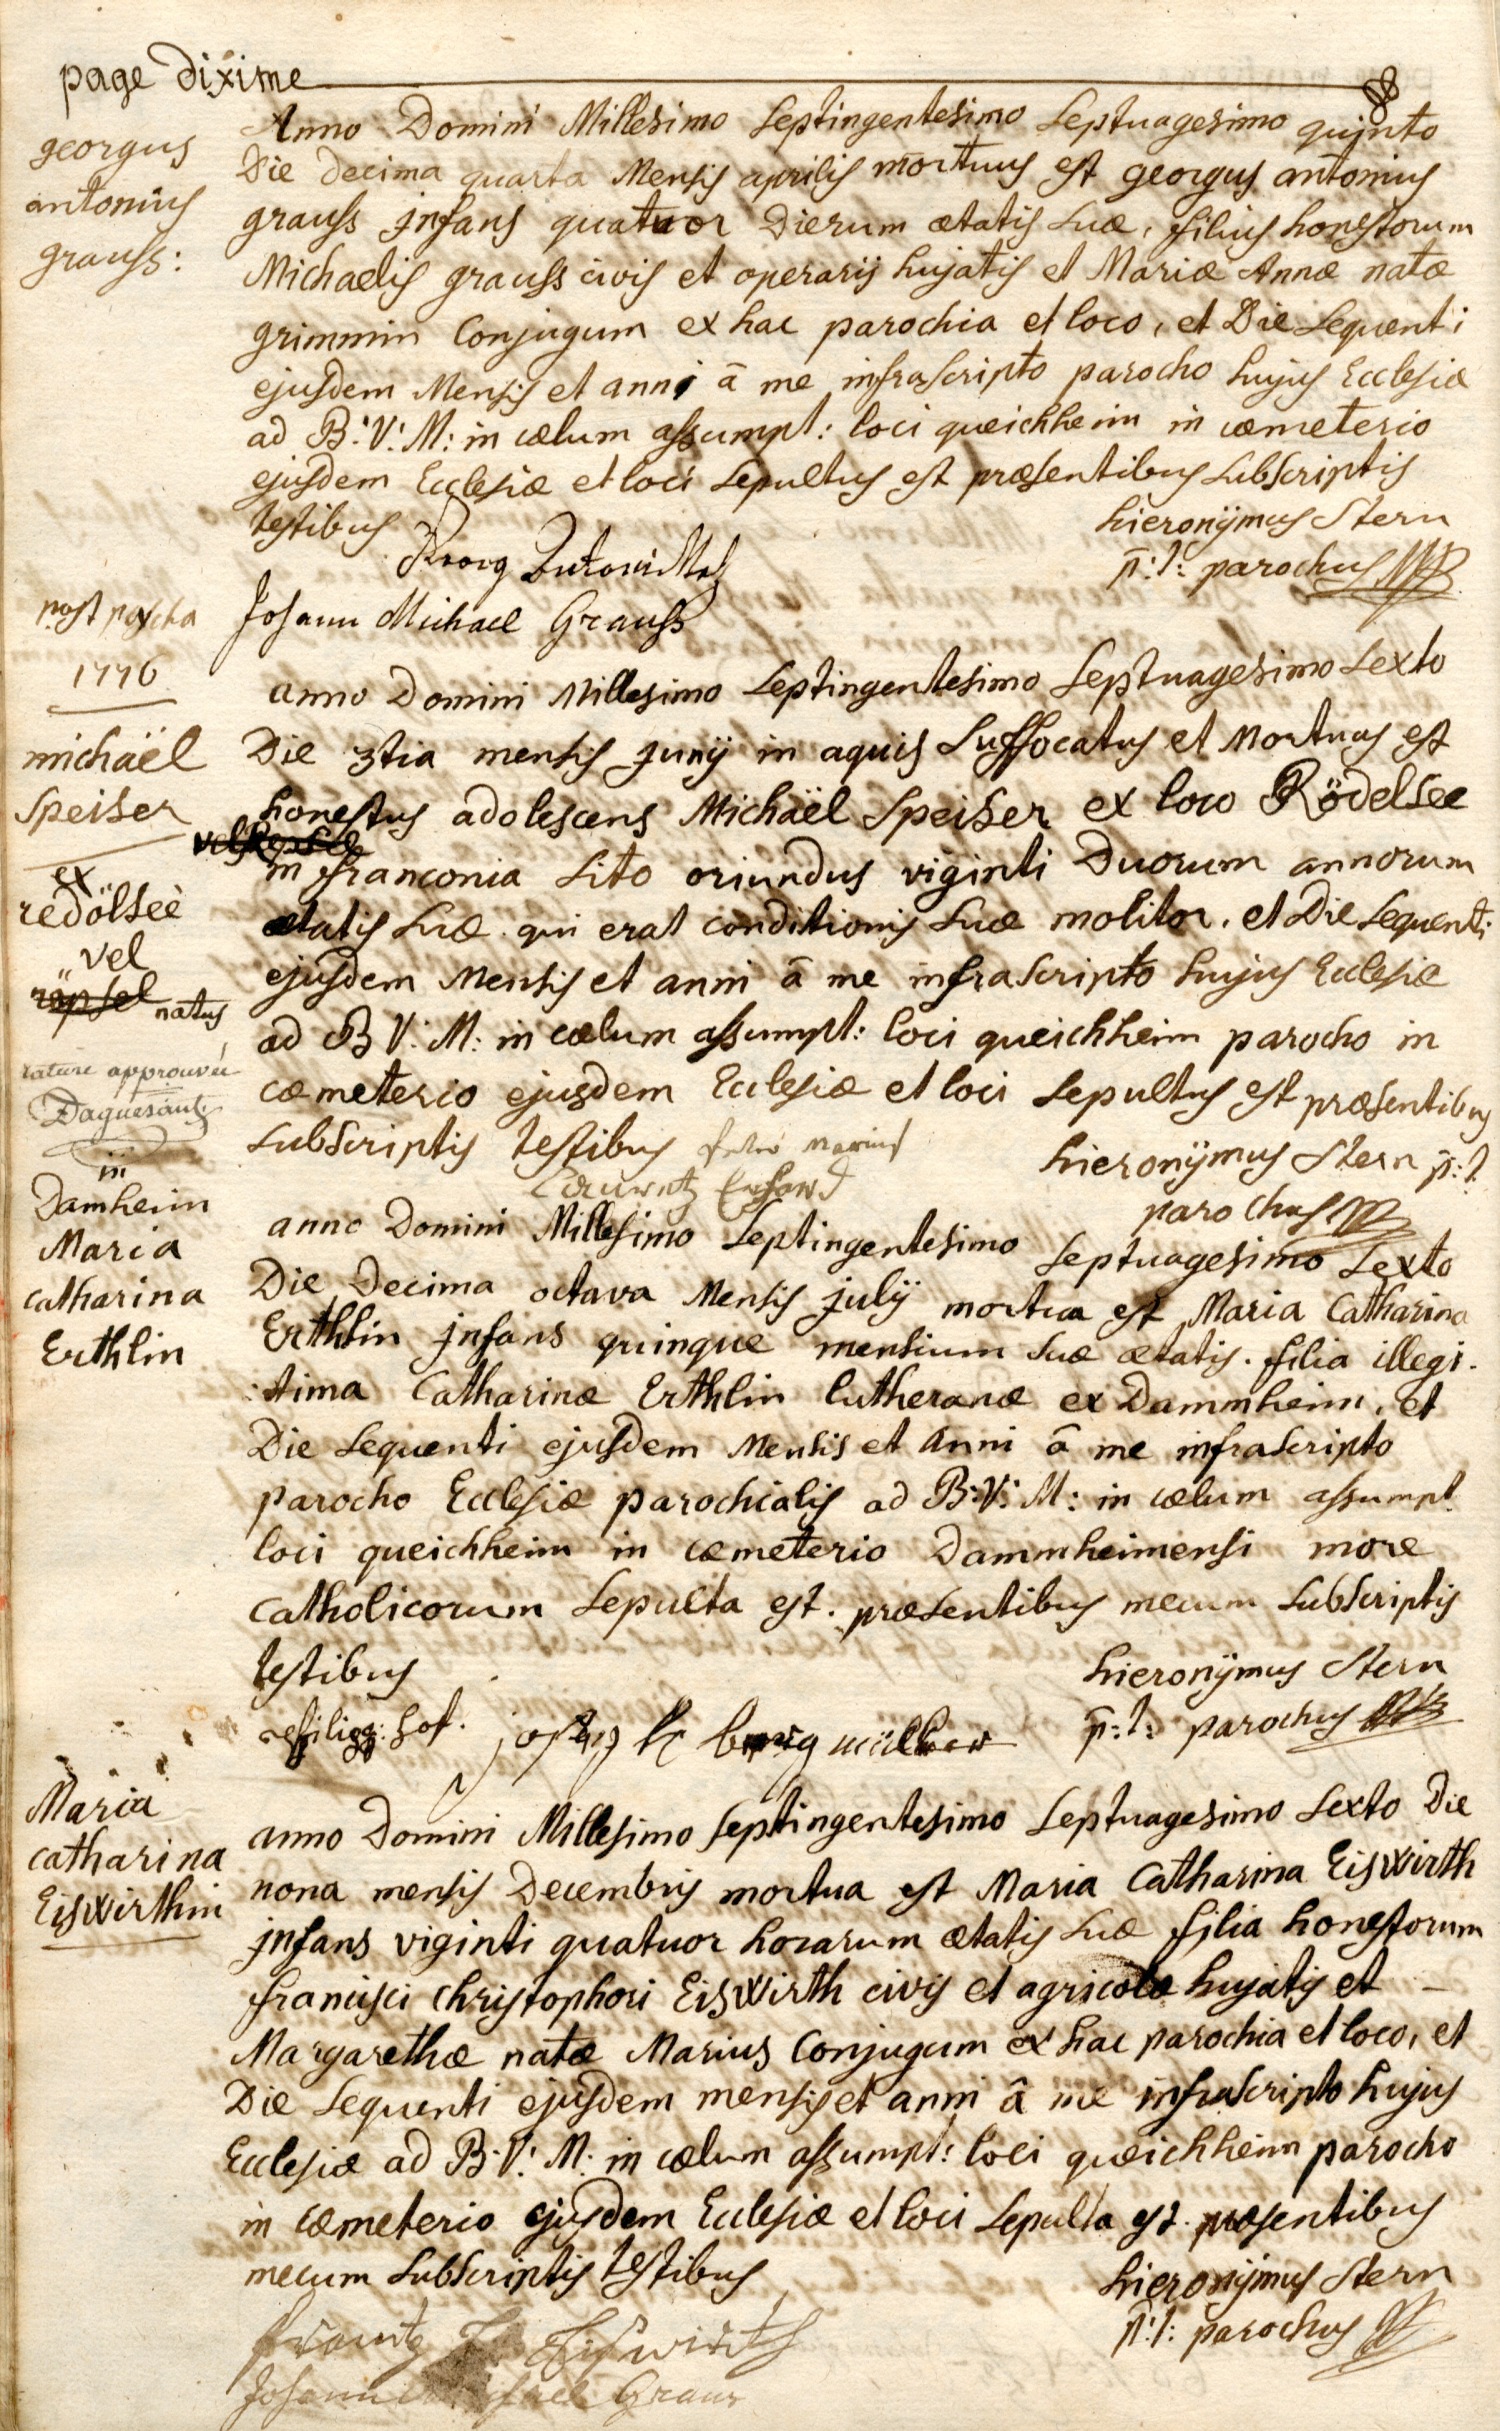 page dixime
georgus
antonius
grauss:
Anno Domini Millesimo Septingentesimo Septuagesimo quinto
Die decima quarta Mensis aprilis mortuus est georgus antonius
grauss jnfans quatuor Dierum ætatis suæ, filius honestorum
Michaelis grauss civis et operarij hujatis et Mariæ Annæ natæ
grimmin Conjugum ex hac parochia et loco, et Die Sequenti
ejusdem Mensis et anni â me infrascripto parocho hujus Ecclesiæ
ad B: V: M: in cælum assumpt: loci queichheim in cæmeterio
ejusdem Ecclesiæ et loci Sepultus est præsentibus Subscriptis
testibus
hieronÿmus Stern
p: t: parochus
Johann Michael Grauss
post pascha
1776
michaël
Speiser
ex
redölseè
vel
räpsel natus
rature approuvée
Daguesant
anno Domini Millesimo Septingentesimo Septuagesimo Sexto
Die 3tia mensis Junij in aquis Suffocatus et Mortuus est
honestus adolescens Michaël Speiser ex loco Rödelsee
in franconia Sito oriundus viginti Duorum annorum
ætatis suæ qui erat conditionis suæ molitor, et Die Sequenti
ejusdem Mensis et anni â me infrascripto hujus Ecclesiæ
ad B V: M: in cælum assumpt: loci queichheim parocho in
cæmeterio ejusdem Ecclesiæ et loci Sepultus est præsentibus
Subscriptis testibus
hieronÿmus Stern p: t.
parochus
in
Damheim
Maria
Catharina
Erthlin
anno Domini Millesimo Septingentesimo Septuagesimo Sexto
Die Decima octava Mensis julij mortua est Maria Catharina
Erthlin jnfans quinque mensium suæ ætatis. filia illegi-
:tima Catharinæ Erthlin lutheranæ ex Dammheim, et
Die Sequenti ejusdem Mensis et Anni â me infrascripto
parocho Ecclesiæ parochialis ad B: V: M: in cælum assumpt.
loci queichheim in cæmeterio Dammheimensi more
Catholicorum Sepulta est. præsentibus mecum Subscriptis
testibus
hieronÿmus Stern
p: t: parochus
Maria
Catharina
Eiswirthin
anno Domini Millesimo Septingentesimo Septuagesimo Sexto Die
nona mensis Decembris mortua est Maria Catharina Eiswirth
jnfans viginti quatuor horarum ætatis suæ filia honestorum
francisci Christophori Eiswirth civis et agricolæ hujatis et
Margarethæ natæ Marius Conjugum ex hac parochia et loco, et
Die Sequenti ejusdem mensis et anni â me infrascripto hujus
Ecclesiæ ad B: V: M: in cælum assumpt: loci queichheim parocho
in cæmeterio ejusdem Ecclesiæ et loci Sepulta est præsentibus
mecum Subscriptis testibus
hieronÿmus Stern
p: t: parochus
frantz Eisswirth
Johann Grauss